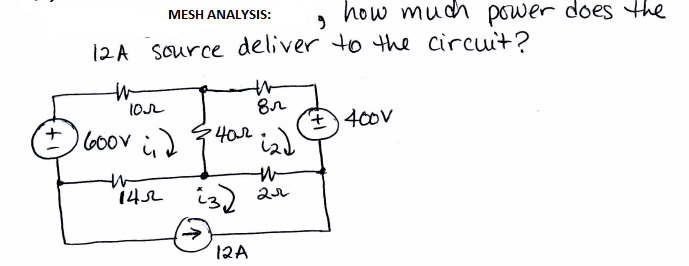 MESH ANALYSIS: , how much power does the
12A source deliver to the circuit?
10Ω 8Ω
+ - 600V i₁ 40Ω i₂ + - 400V
14Ω i₃ 2Ω
12A